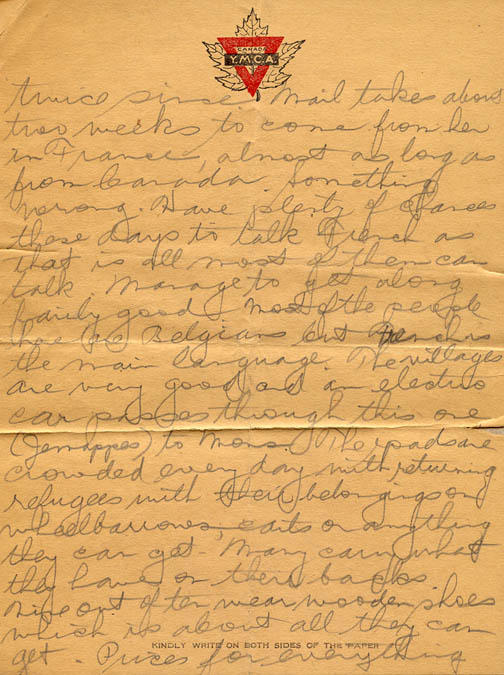 CANADA
Y.M.C.A.
twice since. Mail takes about
two weeks to come from her
in France, almost as long as
from Canada. Something
wrong. Have plenty of chances
these days to talk French as
that is all most of them can
talk. Manage to get along
fairly good. Most of the people
here are Belgians but French is
the main language. The villages
are very good and an electric
car passes through this one
(Jemappes) to Mons. The roads are
crowded every day with returning
refugees with their belongings on
wheelbarrows, carts or anything
they can get. Many carry what
they have on there backs.
Nine out of ten wear wooden shoes
which is about all they can
get. Prices for everything
KINDLY WRITE ON BOTH SIDES OF THE PAPER